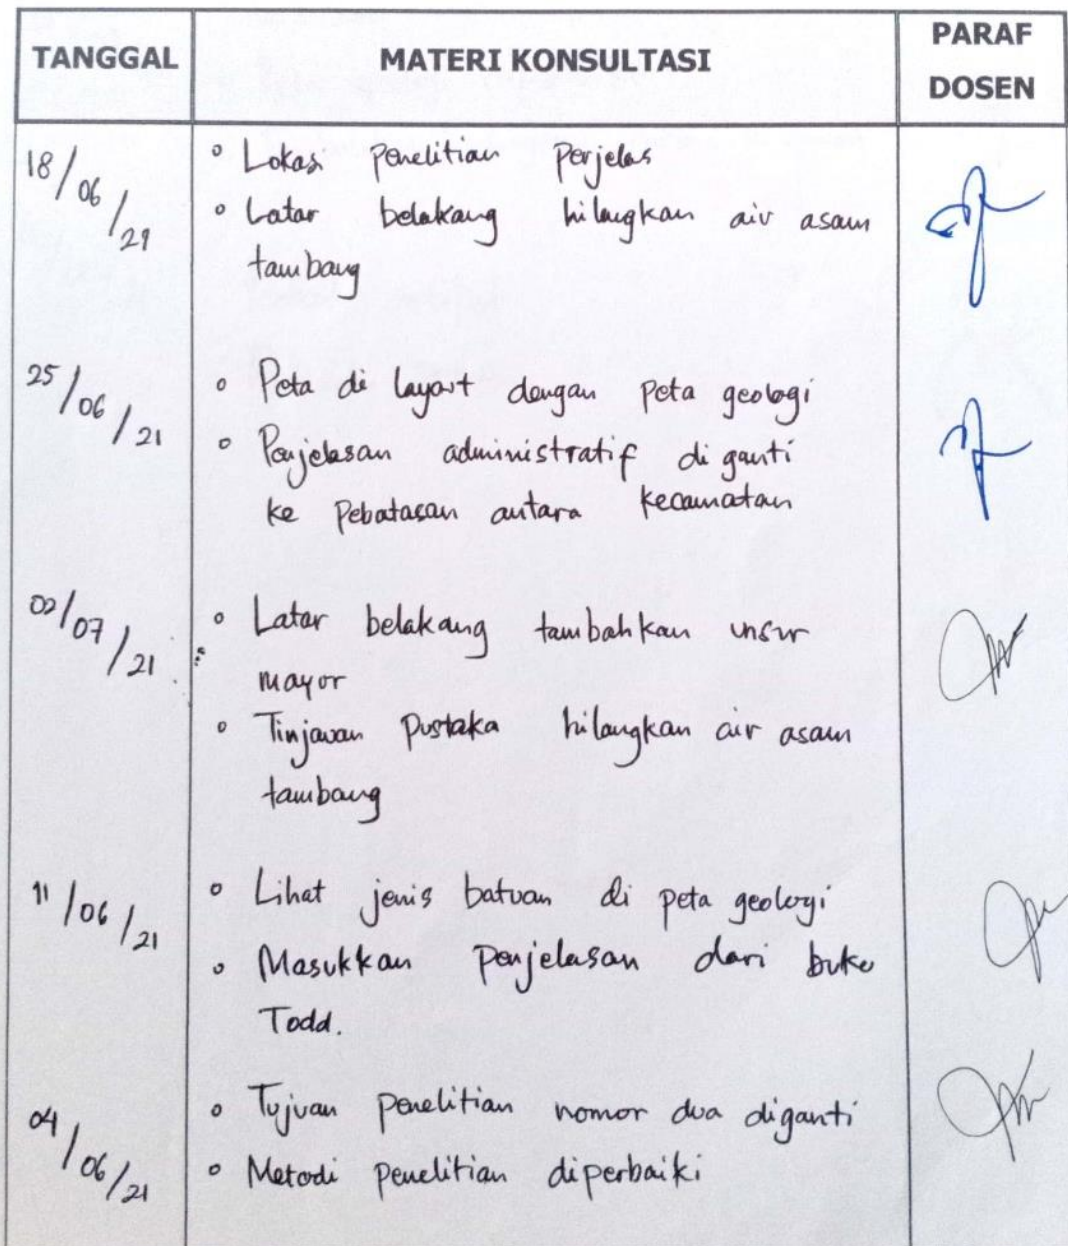 TANGGAL MATERI KONSULTASI PARAF DOSEN
18/06/21 ° Lokasi penelitian perjelas
° Latar belakang hilangkan air asam
tambang
25/06/21 ° Peta di layout dengan peta geologi
° Penjelasan administratif di ganti
ke Pebatasan antara kecamatan
02/07/21 ° Latar belakang tambahkan unsur
mayor
° Tinjauan Pustaka hilangkan air asam
tambang
11/06/21 ° Lihat jenis batuan di peta geologi
° Masukkan penjelasan dari buku
Todd.
04/06/21 ° Tujuan penelitian nomor dua diganti
° Metodi penelitian diperbaiki